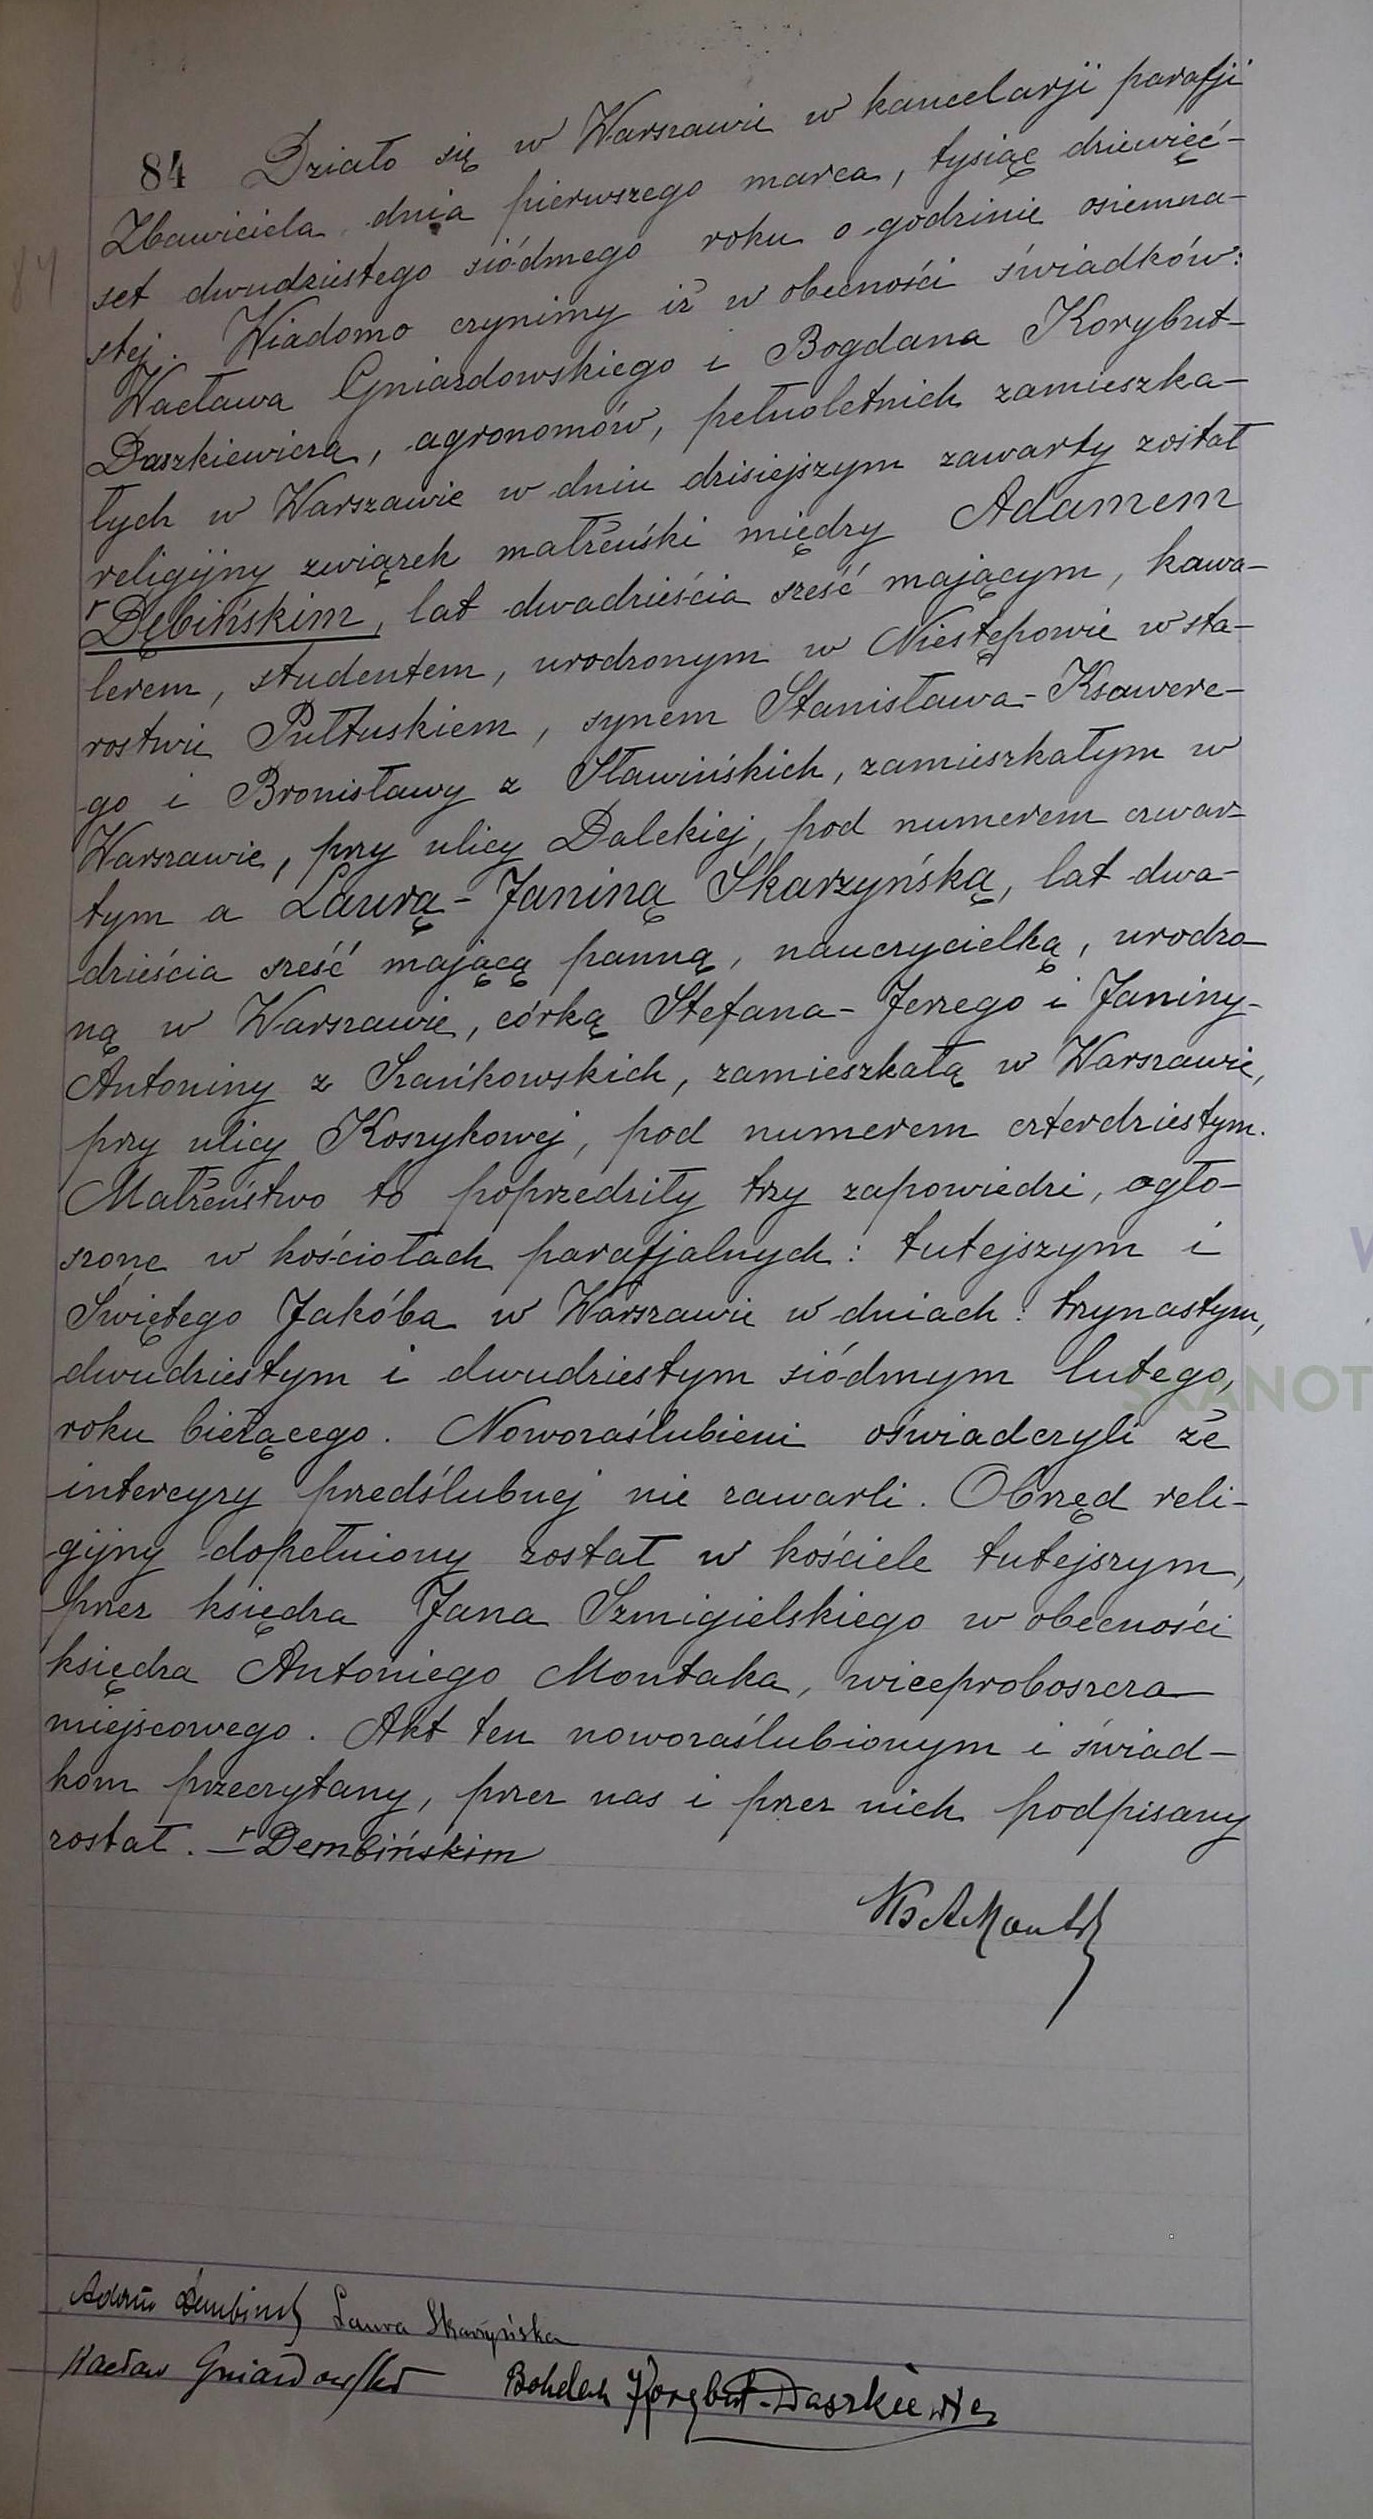 84 Działo się w Warszawie w kancelarji parafji
Zbawiciela dnia pierwszego marca, tysiąc dziewięć-
set dwudziestego siódmego roku o godzinie osiemna-
stej. Wiadomo czynimy iż w obecności świadków:
Wacława Gniazdowskiego i Bogdana Korybut-
Daszkiewicza, agronomów, pełnoletnich zamieszka-
łych w Warszawie w dniu dzisiejszym zawarty został
religijny związek małżeński między Adamem
r Dębińskim, lat dwadzieścia sześć mającym, kawa-
lerem, studentem, urodzonym w Niestępowie w sta-
rostwie Pułtuskiem, synem Stanisława-Ksawere-
go i Bronisławy z Sławińskich, zamieszkałym w
Warszawie, przy ulicy Dalekiej, pod numerem czwar-
tym a Laurą-Janiną Skarzyńską, lat dwa-
dzieścia sześć mającą panną, nauczycielką, urodzo-
ną w Warszawie, córką Stefana-Jerzego i Janiny-
Antoniny z Szańkowskich, zamieszkałą w Warszawie,
przy ulicy Koszykowej, pod numerem czterdziestym.
Małżeństwo to poprzedziły trzy zapowiedzi, ogło-
szone w kościołach parafjalnych: tutejszym i
Świętego Jakóba w Warszawie w dniach: trzynastym,
dwudziestym i dwudziestym siódmym lutego,
roku bieżącego. Nowozaślubieni oświadczyli że
intercyzy przedślubnej nie zawarli. Obrzęd reli-
gijny dopełniony został w kościele tutejszym,
przez księdza Jana Szmigielskiego w obecności
księdza Antoniego Montaka, wiceproboszcza
miejscowego. Akt ten nowozaślubionym i świad-
kom przeczytany, przez nas i przez nich podpisany
został. - r Dembińskim
Ks A Montak
Adam Dembiński Laura Skarzyńska
Wacław Gniazdowski Bohdan Korybut-Daszkiewicz
SKANOT